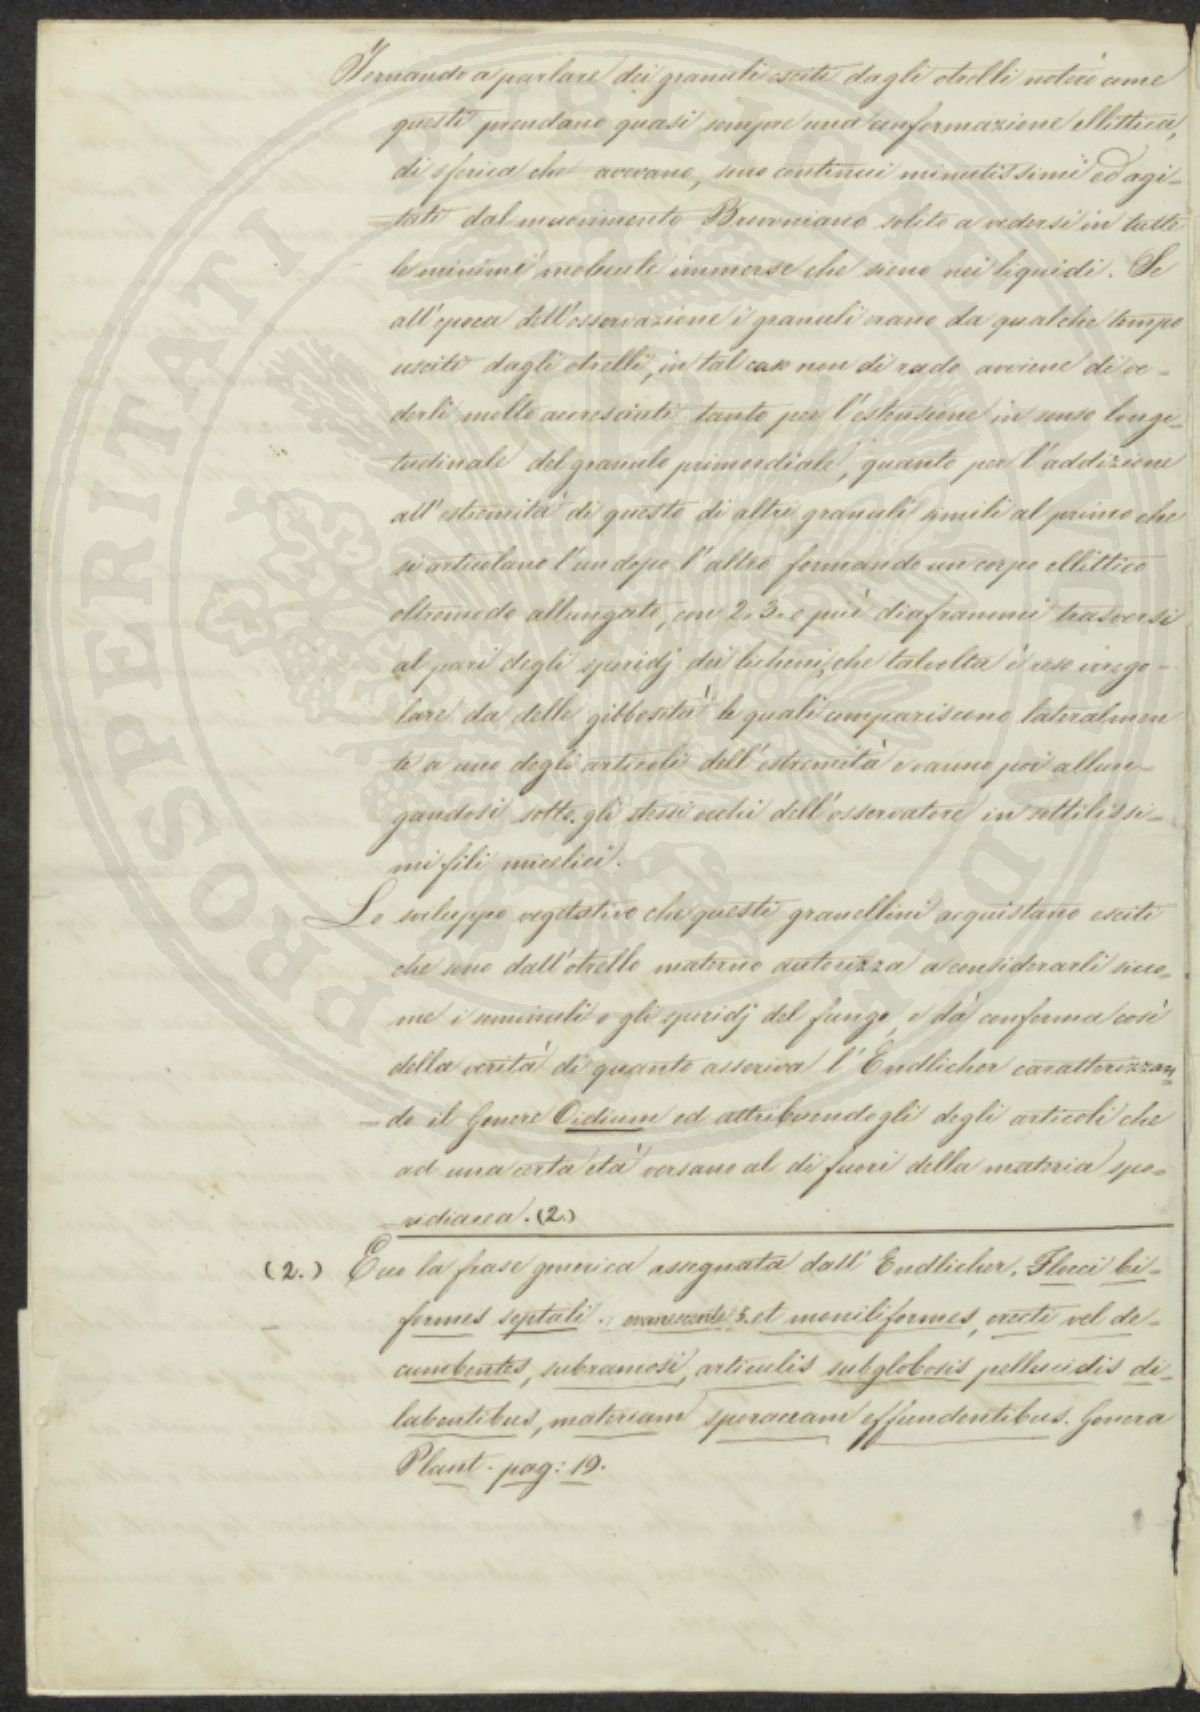 Tornando a parlare dei granuli esciti dagli otrelli noterò come
questi prendano quasi sempre una conformazione ellittica,
di sferica che avevano, sono continui minutissimi ed agi-
=tati dal muovimento Browniano solito a vedersi in tutte
le minime molecule immerse che sieno nei liquidi. Se
all'epoca dell'osservazione i granuli erano da qualche tempo
usciti dagli otrelli, in tal caso non di rado avviene di ve-
derli molto accresciuti tanto per l'estensione in senso longi-
tudinale del granulo primordiale, quanto per l'addizione
all'estremità di questo di altri granuli simili al primo che
si articolano l'un dopo l'altro formando un corpo ellittico
oltremodo allungato, con 2. 3. e più diaframmi trasversi
al pari degli sporidj dei licheni, che talvolta è reso irrego-
lare da delle gibbosità le quali compariscono lateralmen
te a uno degli articoli dell'estremità e vanno poi allun-
gandosi sotto gli stessi occhi dell'osservatore in sottilissi-
mi fili micelici.
Lo sviluppo vegetativo che questi granellini acquistano esciti
che sono dall'otrello materno autorizza a considerarli sicco-
me i seminuli o gli sporidj del fungo, e dà conferma così
della verità di quanto asseriva l'Endlicher caratterizzan
=do il Genere Oidium ed attribuendogli degli articoli che
ad una certa età versano al di fuori della materia spo=
=ridiacea. (2.)
(2.) Ecco la frase generica assegnata dall'Endlicher. Flocci bi-
formes septati . , evanescentes. et moniliformes, erecti vel de-
cumbentes, subramosi, articulis subglobosis pellucidis di-
labentibus, materiam sporaceam effundentibus. Genera
Plant. pag: 19.
PROSPERITATI PUBLICAE AUGENDAE